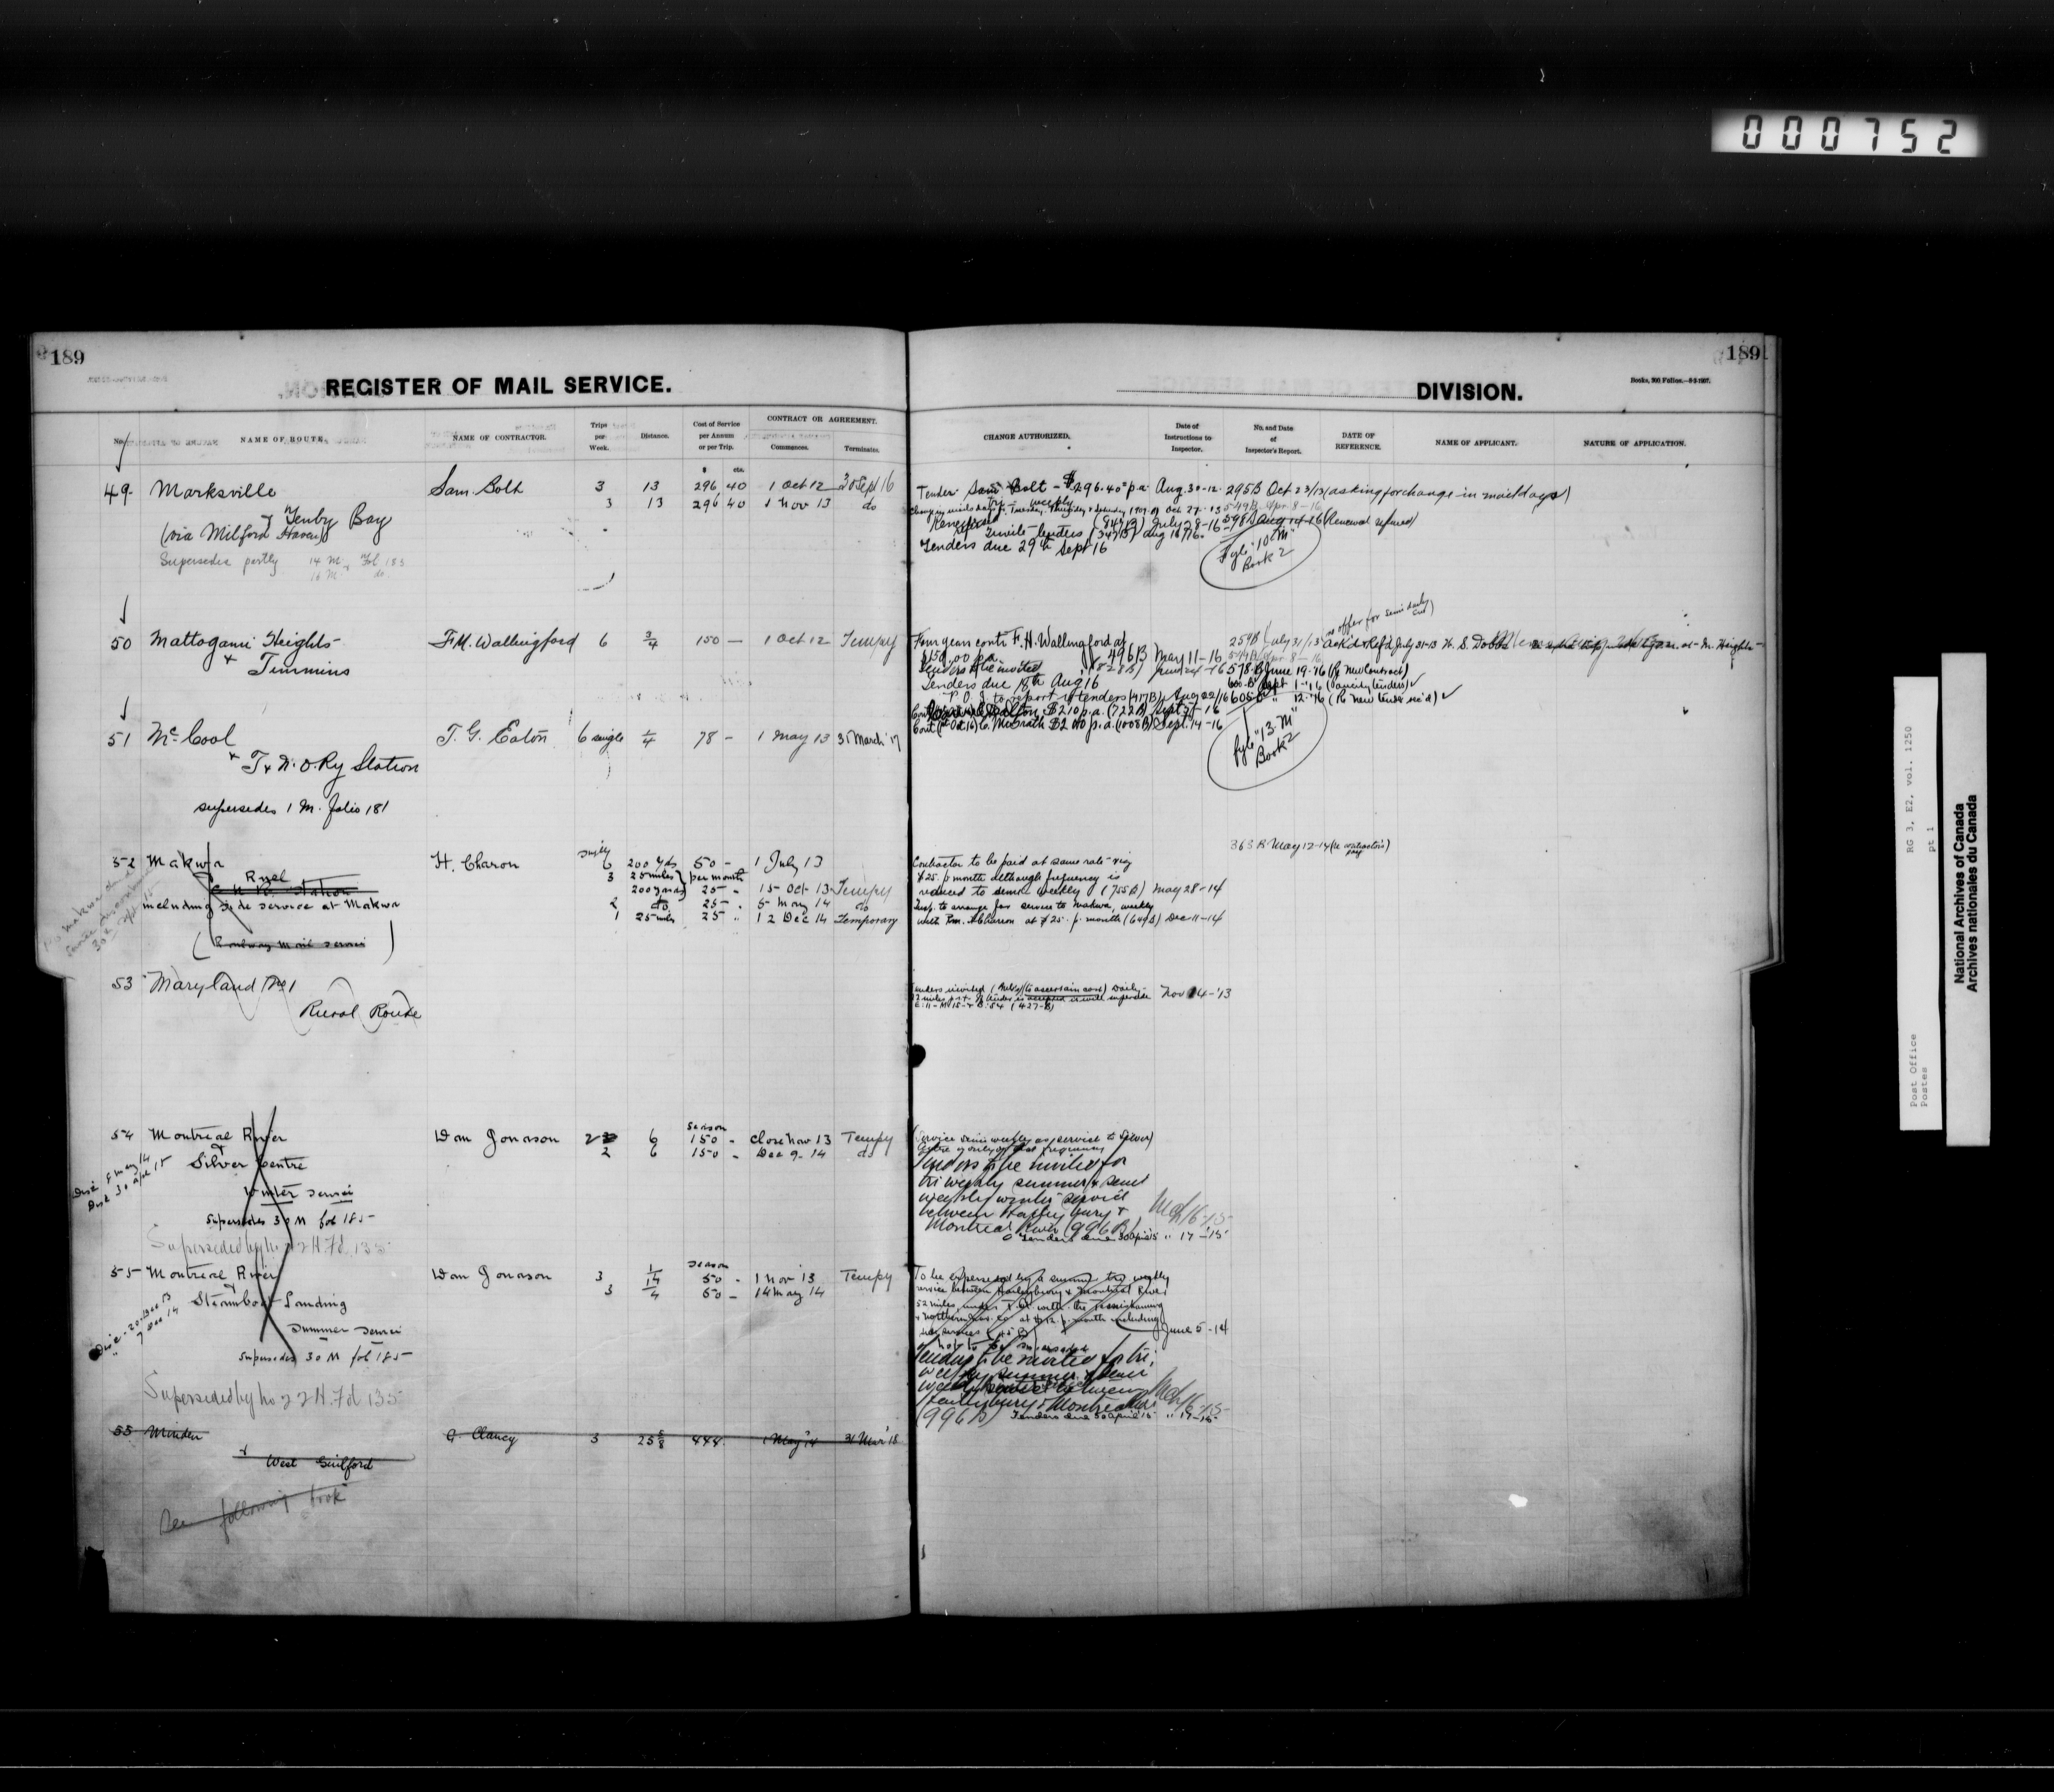 000752
189
REGISTER OF MAIL SERVICE.
No.
NAME OF ROUTE.
NAME OF CONTRACTOR.
Trips per Week.
Distance.
Cost of Service per Annum or per Trip.
CONTRACT OR AGREEMENT.
Commences.
Terminates.
$ cts.
49 Marksville Sam. Bolt 3 13 296 40 1 Oct 12 30 Sept 16
& Tenby Bay 3 13 296 40 1 Nov 13 do
(via Milford Haven)
Supersedes partly 14 M Fol 183
16 M do
50 Mattagami Heights F.M. Wallingford 6 3/4 150 — 1 Oct 12 Tempy
& Timmins
51 McCool T. G. Eaton 6 single 1/4 78 - 1 May 13 31 March 17
& T & N. O. Ry Station
supersedes 1 M. folio 181
52 Makwa H. Charon 6 200 yds 50 - 1 July 13
& Ruel 3 25 miles per month
C N Ry Station 200 yards 25 - 15 Oct 13 Tempy
including side service at Makwa 2 do 25 - 5 May 14 do
1 25 miles 25 " 12 Dec 14 Temporary
(Railway Mail Service)
53 Maryland No 1
Rural Route
54 Montreal River Dan Jonason 2 6 season 150 - Close Nov 13 Tempy
& Silver Centre 2 6 150 - Dec 9 - 14 do
Disc 5 May 14
Disc 30 Apl 15
Winter service
supersedes 30 M fol 185
Superseded by no 22 H. Fol 135
55 Montreal River Dan Jonason 3 1/4 season 50 - 1 Nov 13 Tempy
& Steamboat Landing 3 1/4 50 - 14 May 14
Summer service
supersedes 30 M fol 185
Superseded by no 22 H. Fol 135
55 Minden G. Clancy 3 25 5/8 444. 1 May 14 31 Mar 18
& West Guilford
See following book
189
DIVISION.
Books, 300 Folios.—8-5-1907.
CHANGE AUTHORIZED.
Date of Instructions to Inspector.
No. and Date of Inspector's Report.
DATE OF REFERENCE.
NAME OF APPLICANT.
NATURE OF APPLICATION.
Tender Sam Bolt - $296.40 p.a. Aug. 30-12. 295B Oct 23/13 (asking for change in mail days)
549B Apr 8-16
(847B) July 28-16 598B Aug 14-16 (Renewal refused)
Invite tenders (347B) Aug 18/16.
Tenders due 29th Sept 16
Fyle "10 M" Book 2
no offer for semi daily
Four year contr F. H. Wallingford at 259B July 31/13
$150.00 p.a. 496B May 11-16 549B Apr 8-16
578 B June 19-16 (re New Contract)
Tenders due 18th Aug 16
600 B Sept 1-16
P.O.I. to report re tenders (417B) Aug 22/16 605 B " 12-16 (re New tender rec'd)
$210 p.a. (722B) Sept 5-16
C. McGrath $200 p.a. (1008B) Sept. 14-16
Fyle "13 M" Book 2
363 B May 12-14 (re contractor's pay)
Contractor to be paid at same rate viz
$25. p month although frequency is
reduced to semi weekly (755B) May 28-14
Insp. to arrange for service to Makwa, weekly
with Pm. H Charon at $25. p. month (649B) Dec 11-14
Tenders invited (to ascertain cost) Daily - Nov 14-'13
(427-B)
(Service semi weekly as service to Silver
Tenders to be invited for
tri weekly summer & semi
weekly winter service
between Haileybury &
Montreal River (996B) Mch 16-15
Tenders due 30 April 15 " 17-15
To be superseded by a summer tri weekly
service between Haileybury & Montreal River
52 miles, under
June 5-14
Tenders to be invited for tri
weekly summer & semi
weekly winter between
Haileybury & Montreal River Mch 16-15
(996B) Tenders due 30 April 15 " 17-15
Post Office
Postes
RG 3, E2, vol. 1250
pt 1
National Archives of Canada
Archives nationales du Canada